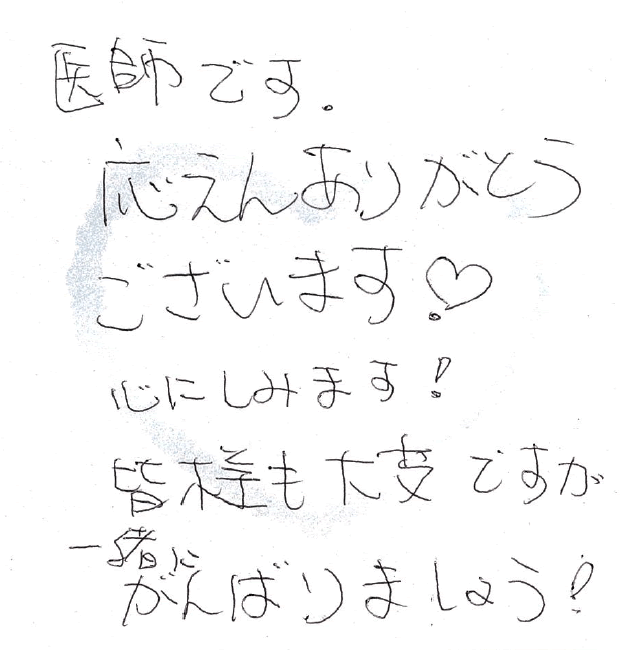 医師です.
応えんありがとう
ございます!♡
心にしみます!
皆様も大変ですが
一緒に
がんばりましょう!